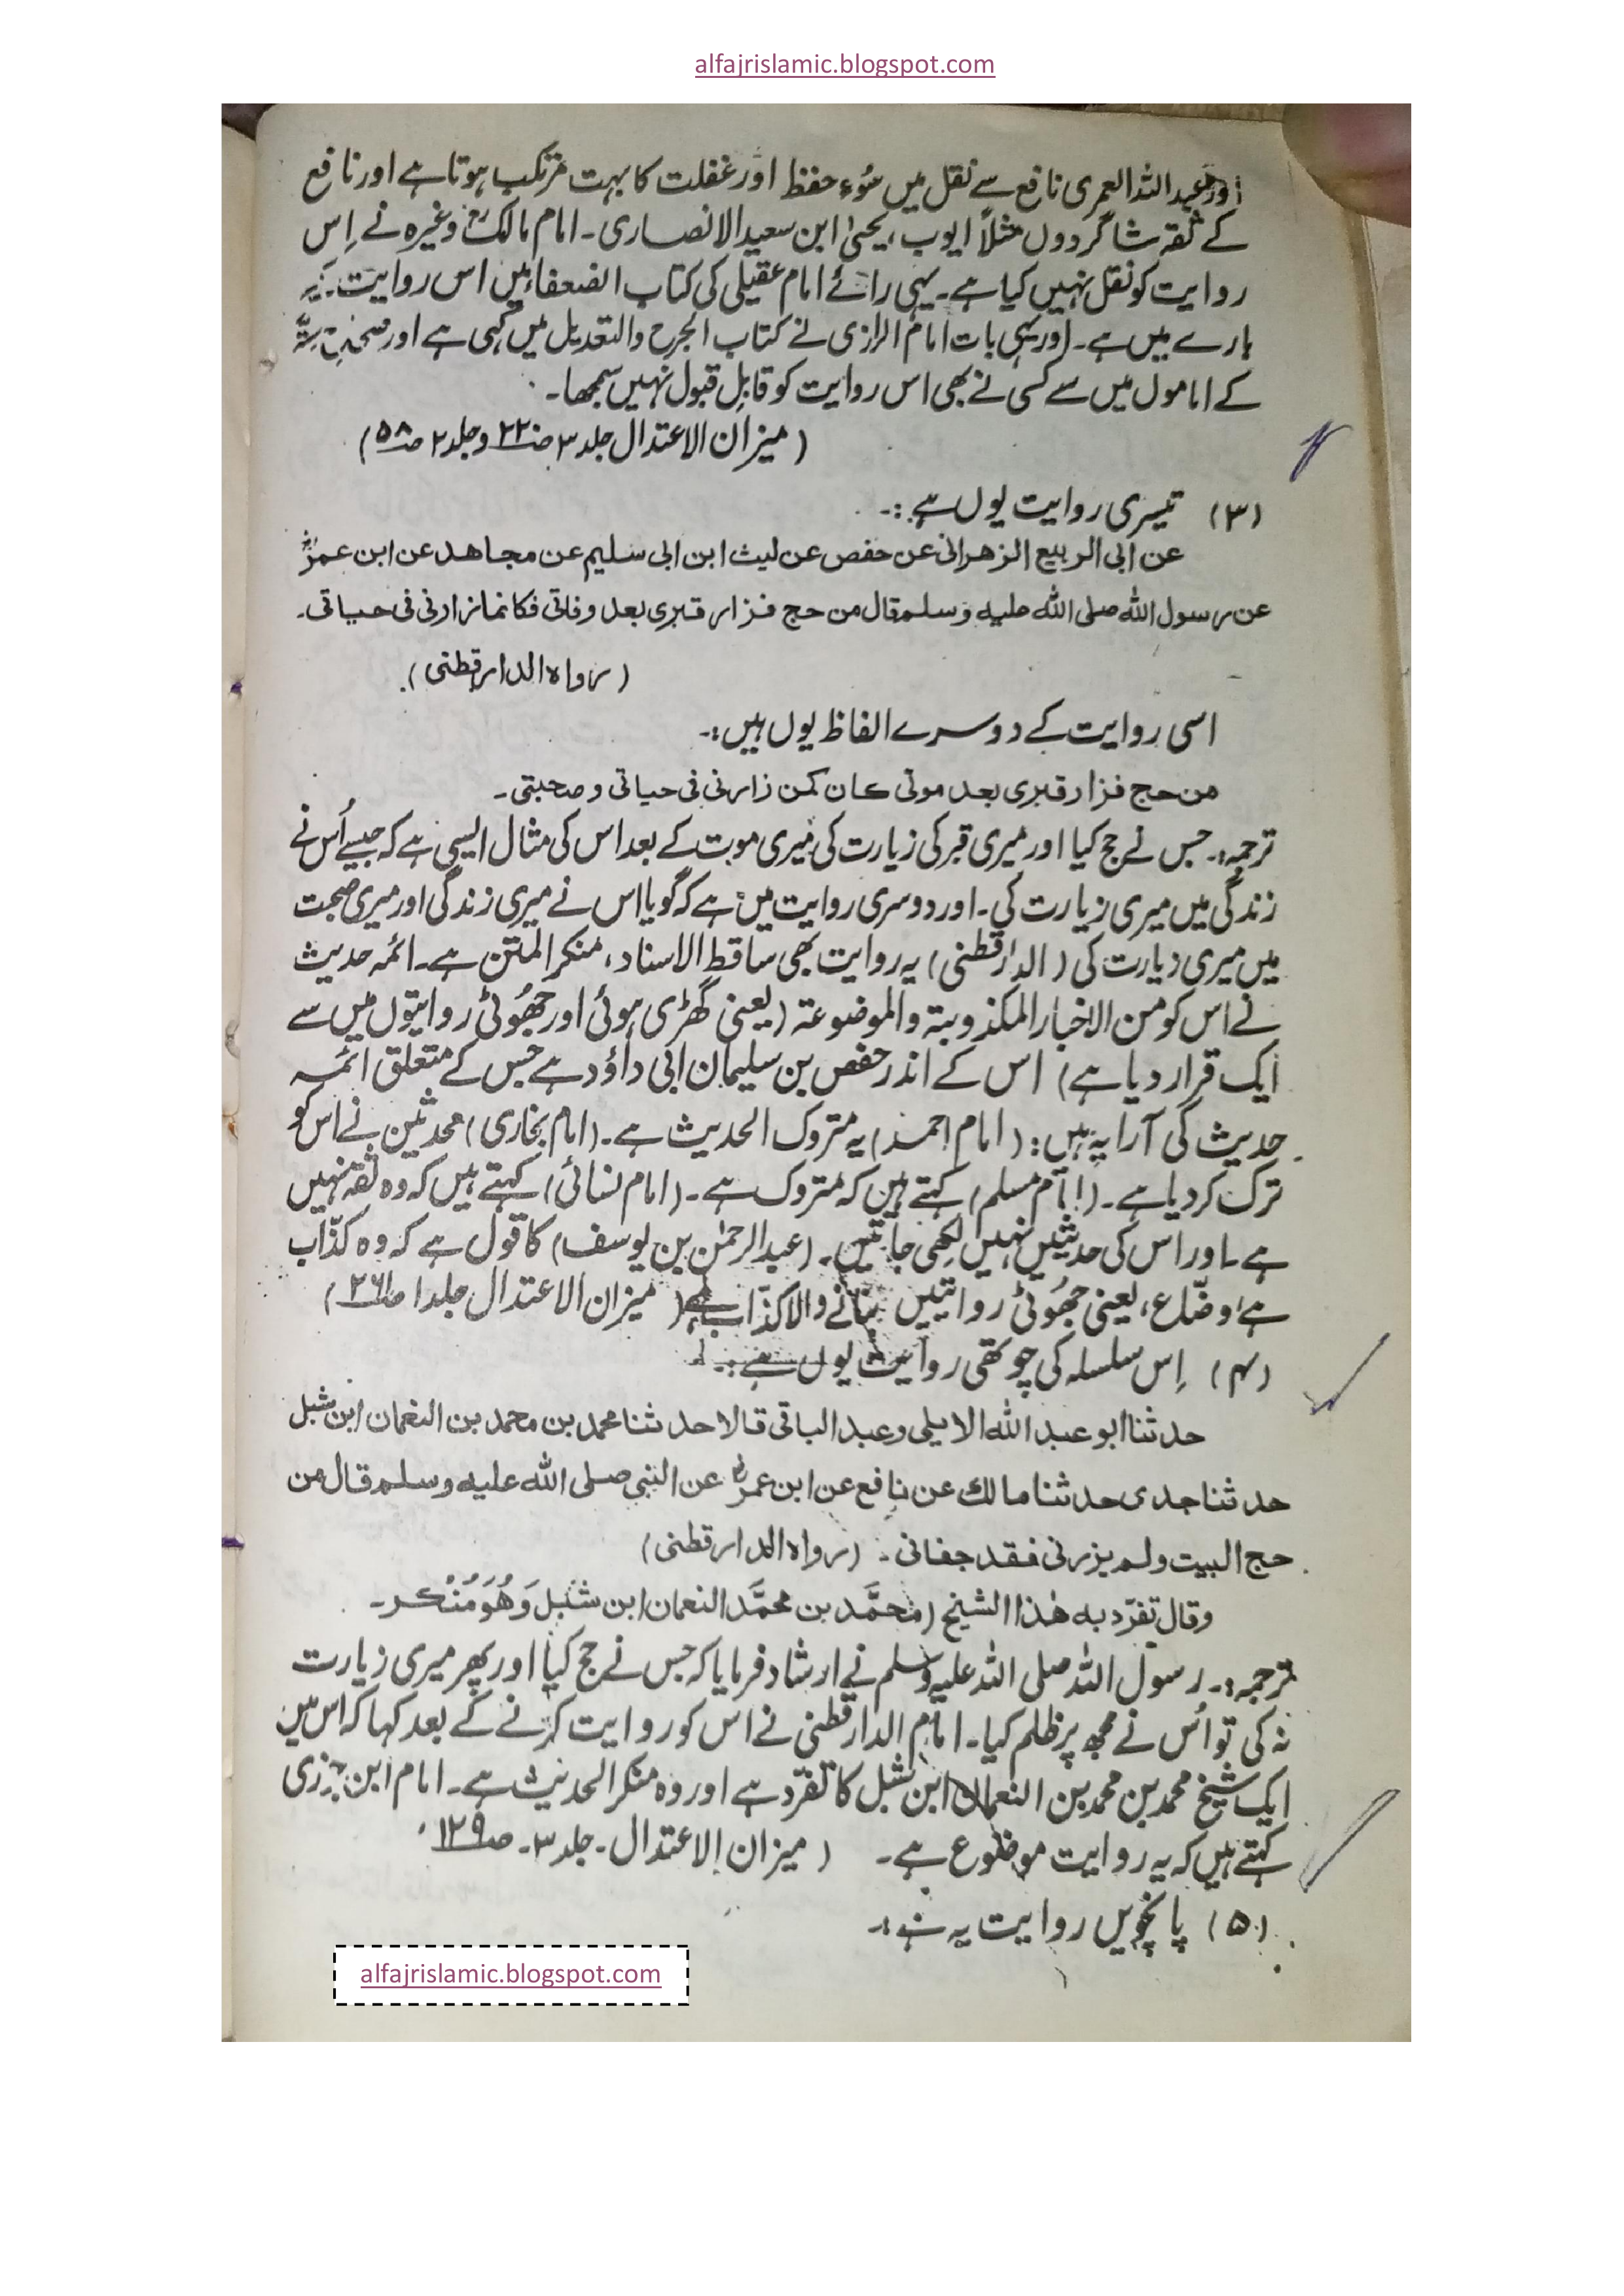 alfajrislamic.blogspot.com
اور عبداللہ العمری نافع سے نقل میں سُوءِ حفظ اور غفلت کا بہت مرتکب ہوتا ہے اور نافع
کے ثقہ شاگردوں مثلاً ایوب، یحییٰ ابن سعید الانصاری۔ امام مالکؒ وغیرہ نے اِس
روایت کو نقل نہیں کیا ہے۔ یہی رائے امام عقیلی کی کتاب الضعفا میں اس روایت کے
بارے میں ہے۔ اور یہی بات امام الرازی نے کتاب الجرح والتعدیل میں کہی ہے اور
کے اماموں میں سے کسی نے بھی اس روایت کو قابلِ قبول نہیں سمجھا۔
(میزان الاعتدال جلد ۳ صـ۲۲ و جلد ۲ صـ۵۸)
(۳) تیسری روایت یوں ہے:۔
عن ابی الربیع الزھرانی عن حفص عن لیث ابن ابی سلیم عن مجاھد عن ابن عمرؓ
عن رسول اللہ صلی اللہ علیہ وسلم قال من حج فزار قبری بعد وفاتی فکانما زارنی فی حیاتی۔
(رواہ الدارقطنی)
اسی روایت کے دوسرے الفاظ یوں ہیں:۔
من حج فزار قبری بعد موتی کان کمن زارنی فی حیاتی وصحبتی۔
ترجمہ:۔ جس نے حج کیا اور میری قبر کی زیارت کی میری موت کے بعد اس کی مثال ایسی ہے کہ جیسے اُس نے
زندگی میں میری زیارت کی۔ اور دوسری روایت میں ہے کہ گویا اس نے میری زندگی اور میری صحبت
میں میری زیارت کی (الدارقطنی) یہ روایت بھی ساقط الاسناد، منکر المتن ہے۔ ائمہ حدیث
نے اس کو من الاخبار المکذوبتہ والموضوعتہ (یعنی گھڑی ہوئی اور جھُوٹی روایتوں میں سے
ایک قرار دیا ہے) اس کے اندر حفص بن سلیمان ابی داؤد ہے جس کے متعلق ائمہ
حدیث کی آرا یہ ہیں: (امام احمد) یہ متروک الحدیث ہے۔ (امام بخاری) محدثین نے اس کو
ترک کر دیا ہے۔ (امام مسلم) کہتے ہیں کہ متروک ہے۔ (امام نسائی) کہتے ہیں کہ وہ ثقہ نہیں
ہے۔ اور اس کی حدثیں نہیں لکھی جاتیں۔ (عبدالرحمٰن بن یوسف) کا قول ہے کہ وہ کذّاب
ہے، وضّاع، یعنی جھُوٹی روایتیں بنانے والا کذّاب ہے (میزان الاعتدال جلد ۱ صـ۲۶۱)
(۴) اِس سلسلہ کی چوتھی روایت یوں ہے:۔
حدثنا ابو عبد اللہ الایلی وعبد الباقی قالا حدثنا محمد بن محمد بن النعمان ابن شبل
حدثنا جدی حدثنا مالک عن نافع عن ابن عمرؓ عن النبی صلی اللہ علیہ وسلم قال من
حج البیت ولم یزرنی فقد جفانی۔ (رواہ الدارقطنی)
وقال تفرّد بہ ھٰذا الشیخ (محمَّد بن محمَّد النعمان ابن شَبَل وَھُوَ مُنْکر۔
ترجمہ:۔ رسول اللہ صلی اللہ علیہ وسلم نے ارشاد فرمایا کہ جس نے حج کیا اور پھر میری زیارت
نہ کی تو اُس نے مجھ پر ظلم کیا۔ امام الدارقطنی نے اس کو روایت کرنے کے بعد کہا کہ اس میں
ایک شیخ محمد بن محمد بن النعمان ابن شبل کا تفرّد ہے اور وہ منکر الحدیث ہے۔ امام ابن جزری
کہتے ہیں کہ یہ روایت موضوع ہے۔ (میزان الاعتدال۔ جلد ۳۔ صـ۱۲۹
(۵) پانچویں روایت یہ ہے:۔
alfajrislamic.blogspot.com